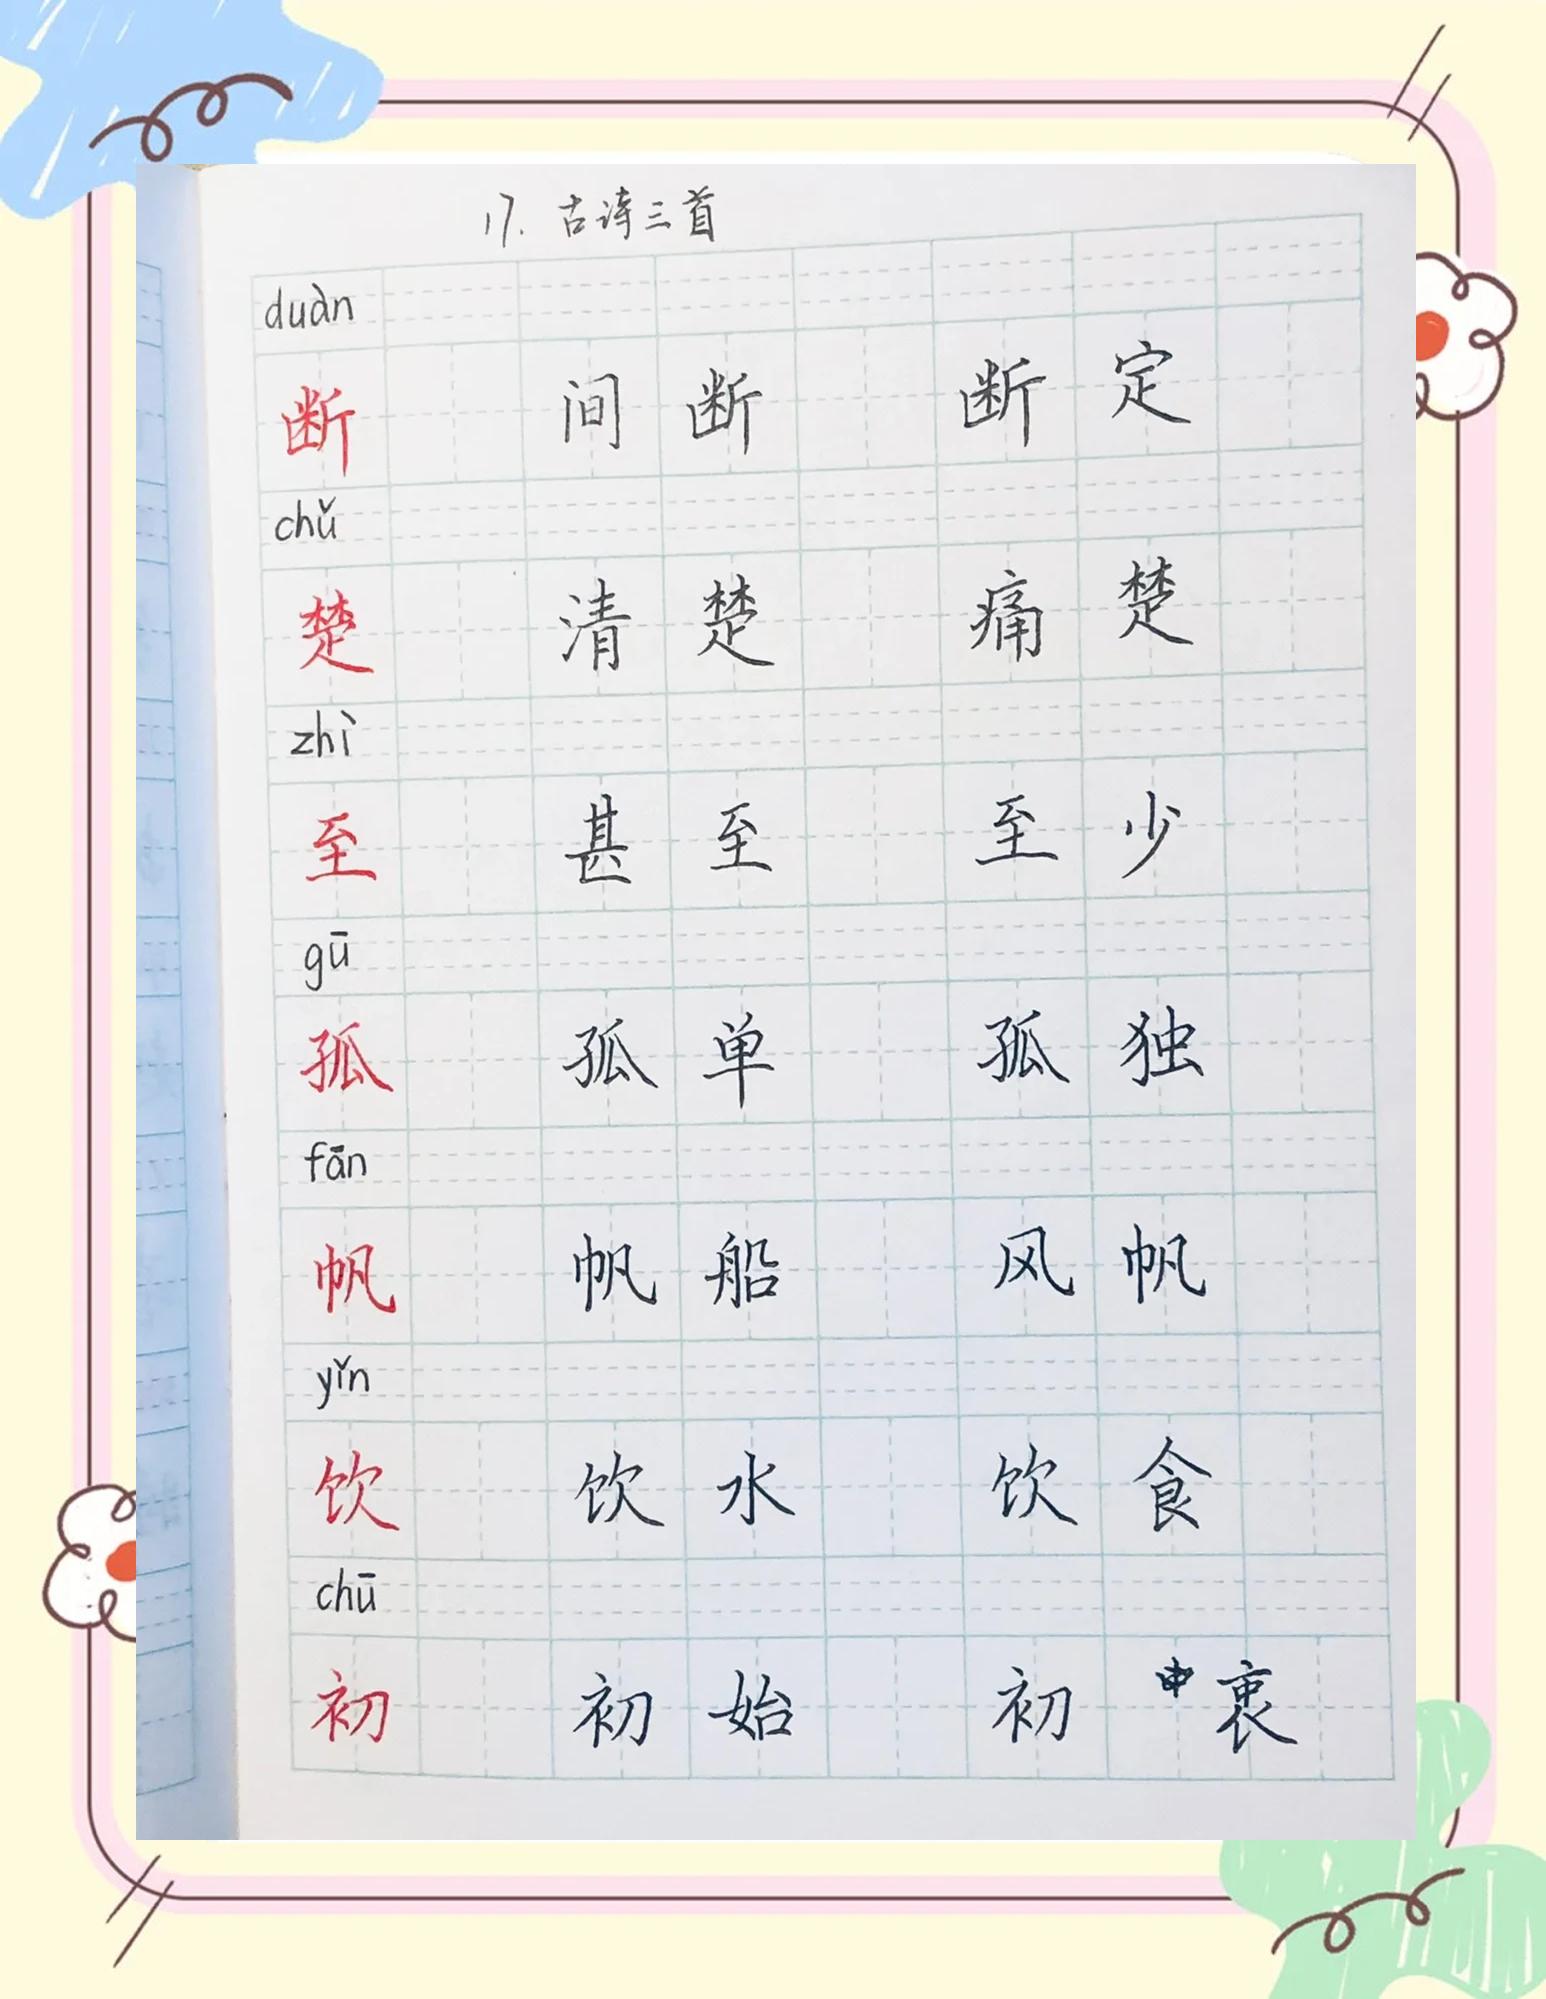 17. 古诗三首
duàn
断 间断 断定
chǔ
楚 清楚 痛楚
zhì
至 甚至 至少
gū
孤 孤单 孤独
fān
帆 帆船 风帆
yǐn
饮 饮水 饮食
chū
初 初始 初衷